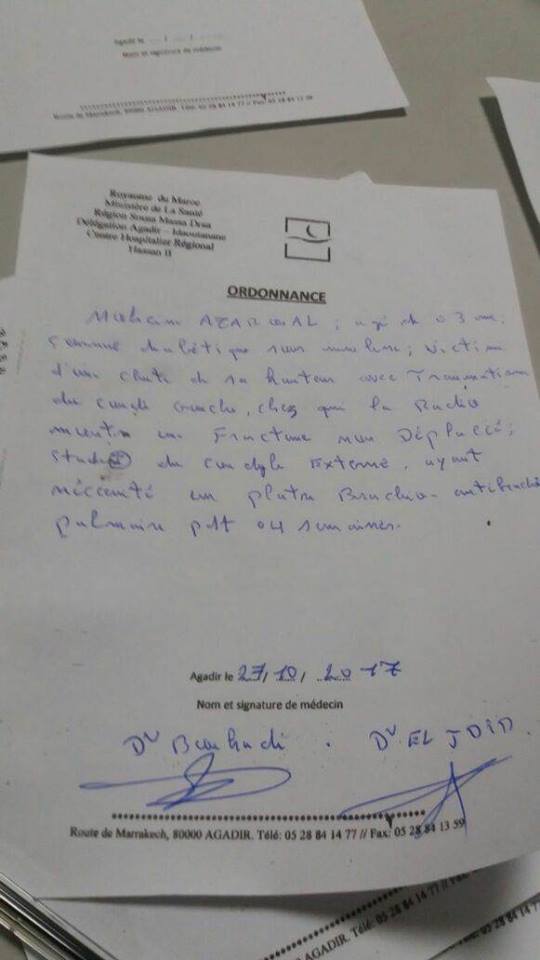 Agadir le
Nom et signature de médecin
Route de Marrakech, 80000 AGADIR. Télé: 05 28 84 14 77 // Fax: 05 28 84 13 59
Royaume du Maroc
Ministère de La Santé
Région Souss Massa Draa
Délégation Agadir – Idaoutanane
Centre Hospitalier Régional
Hassan II
ORDONNANCE
AZAR
diabétique sous insuline; victime
d'une chute de sa hauteur avec Traumatisme
du coude gauche, chez qui la Radio
montre une Fracture non Déplacée,
stade du condyle Externe, ayant
nécessité un platre Brachio-antibrachio
palmaire pdt 04 semaines.
Agadir le 27/10/2017
Nom et signature de médecin
Dr Dr EL
Route de Marrakech, 80000 AGADIR. Télé: 05 28 84 14 77 // Fax: 05 28 84 13 59
84 14 77 //
AGADIR. Télé: 05 28 84 14 77 //